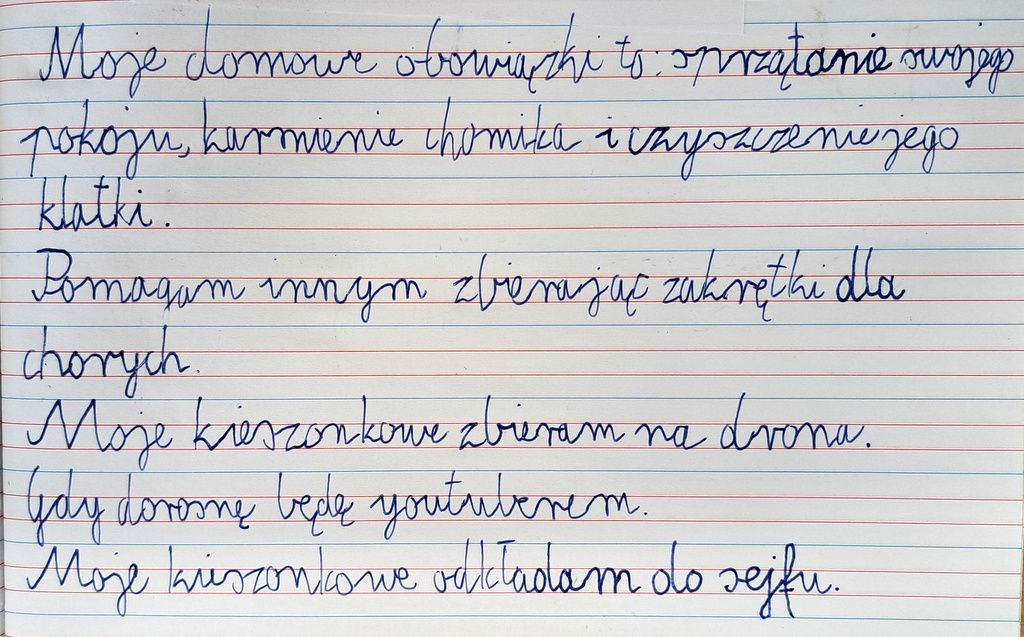 Moje domowe obowiązki to: sprzątanie swojego
pokoju, karmienie chomika i czyszczenie jego
klatki.
Pomagam innym zbierając zakrętki dla
chorych.
Moje kieszonkowe zbieram na drona.
Gdy dorosnę będę youtuberem.
Moje kieszonkowe odkładam do sejfu.